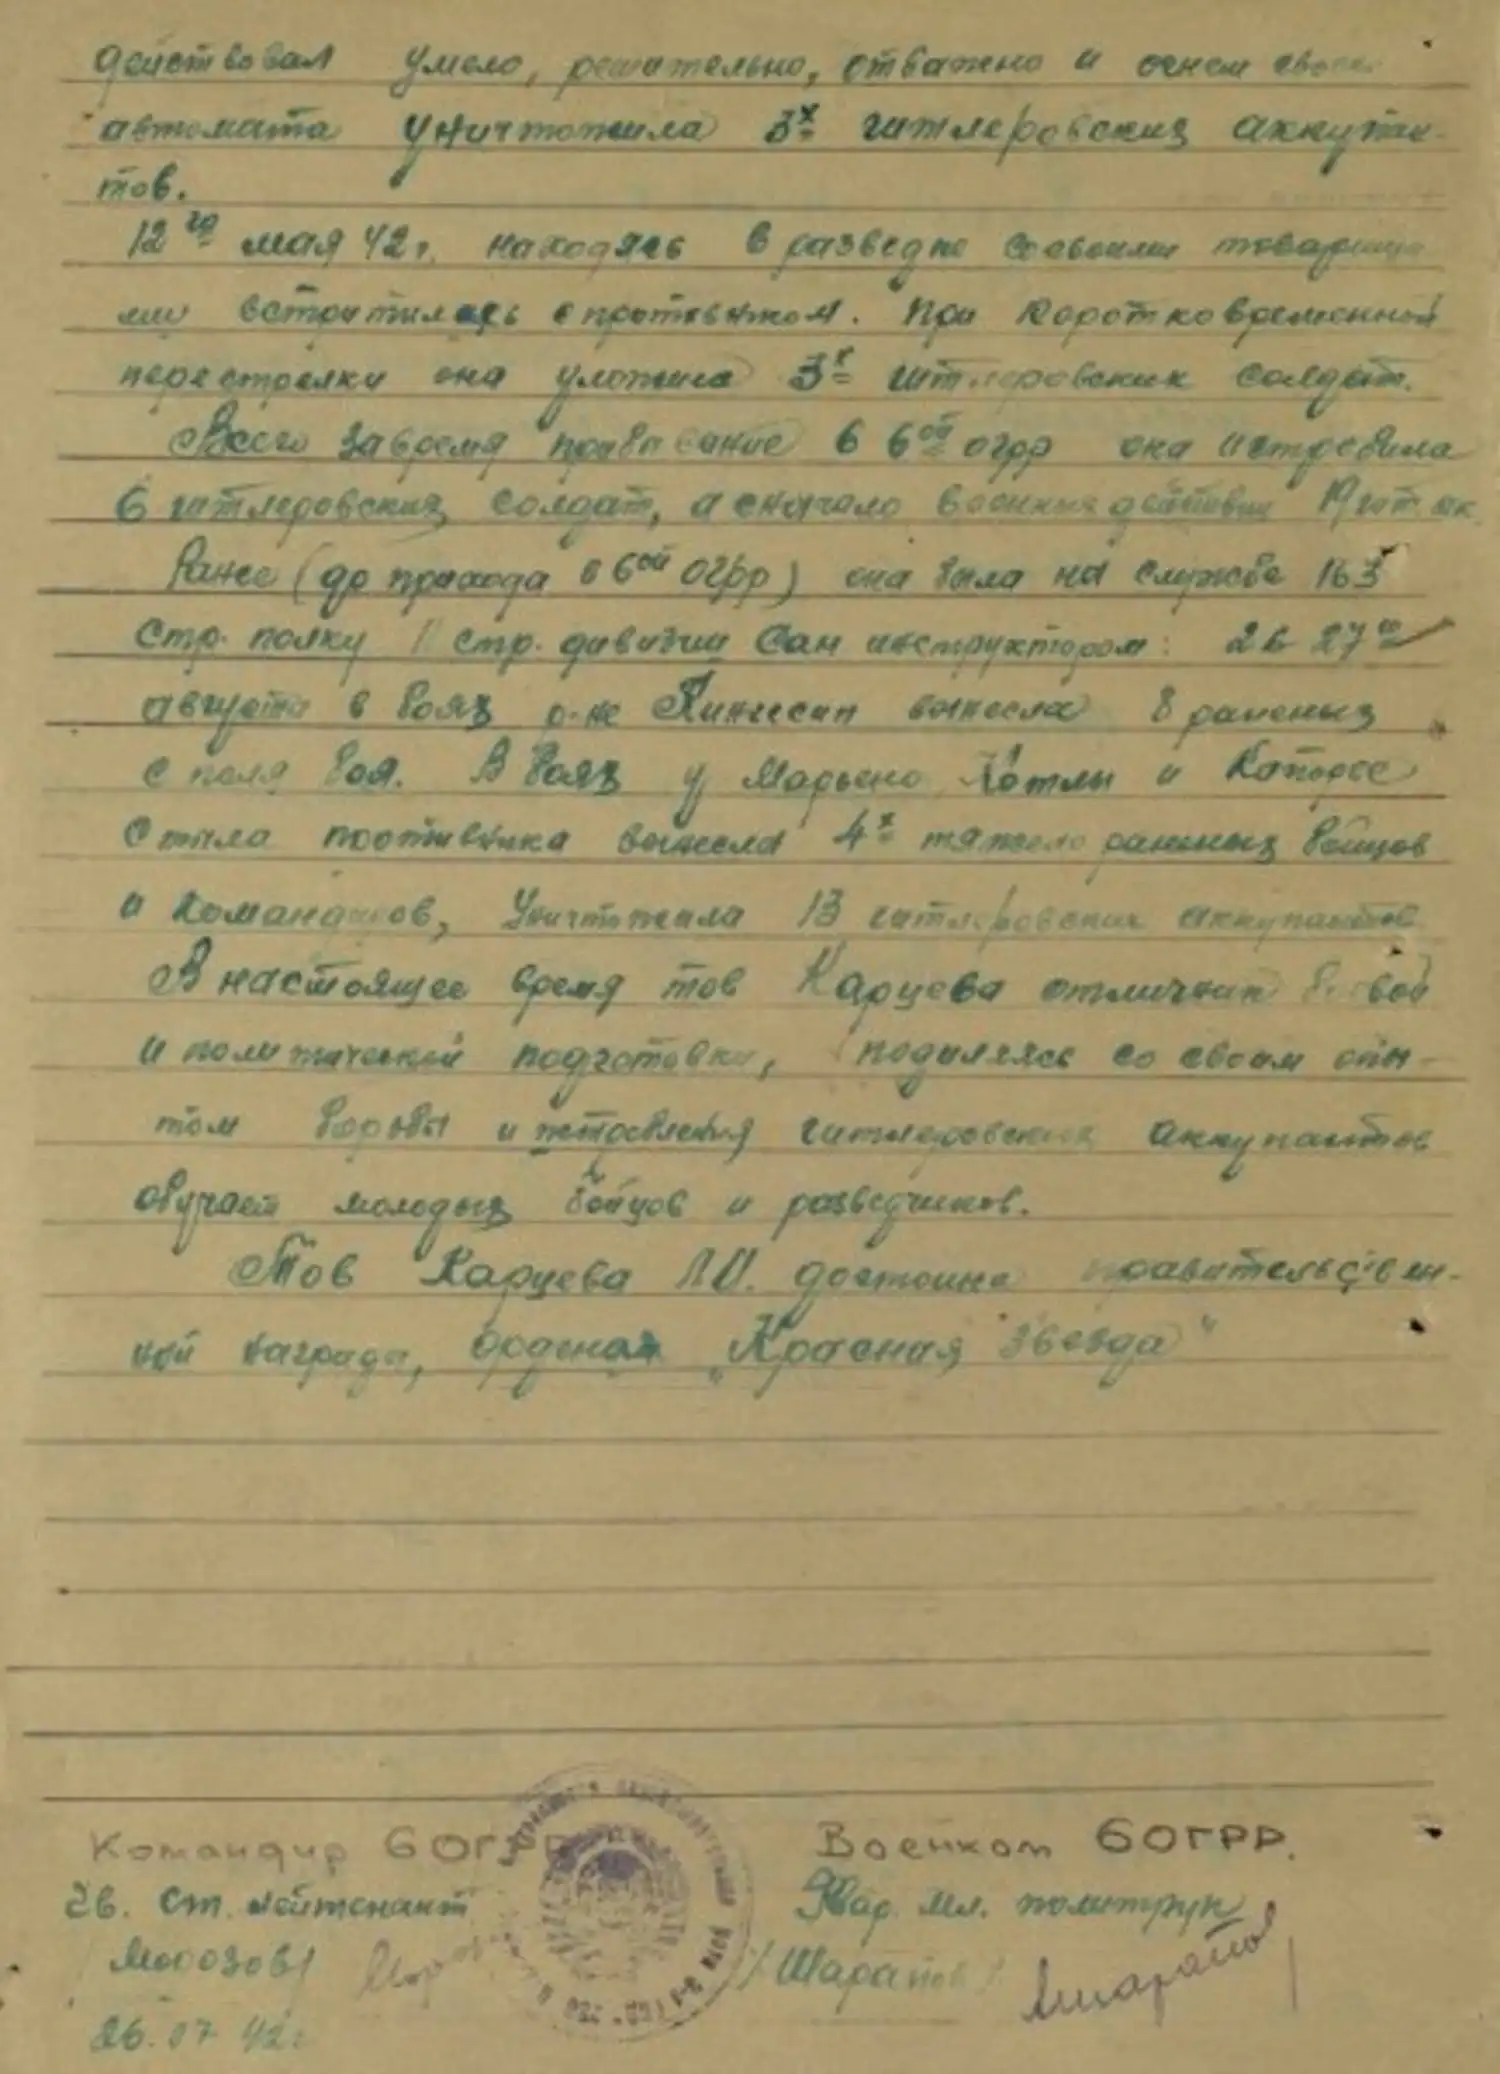 действовал умело, решительно, отважно и огнем своего
автомата уничтожила 3х гитлеровских аккупан-
тов.
12го мая 42г. находясь в разведке со своими товарища
ми встритилась с противником. При коротковременной
перестрелки она уложила 3х гитлеровских солдат.
Всего за время прибывание в 6ой огрр она истребила
6 гитлеровских солдат, а сначало военных действий 19
Ранее (до прихода в 6ой ОГРР) она была на службе 163
стр. полку 11 стр. дивизии Сан инструктором: 26 27го
августа в боях р-не Кингесип вынесла 8 раненых
с поля боя. В боях у Марьено, Котлы и Капорее
с тыла противника вынесла 4х тяжело раненых бойцов
и командиров, уничтожила 13 гитлеровских аккупантов
В настоящее время тов Карцева отличник боевой
и политической подготовки, подиляясь со своим опы-
том борьбы и истребления гитлеровских аккупантов
обучает молодых бойцов и разведчиков.
Тов Карцева Л.И. достойна правительствен-
ной награда, орденом „Красная звезда"
Командир 6ОГРР
Гв. Ст. лейтенант
/Морозов/
26.07 42г
Военком 6ОГРР.
Гвар. Мл. политрук
/Шарапов/
Ашарапов